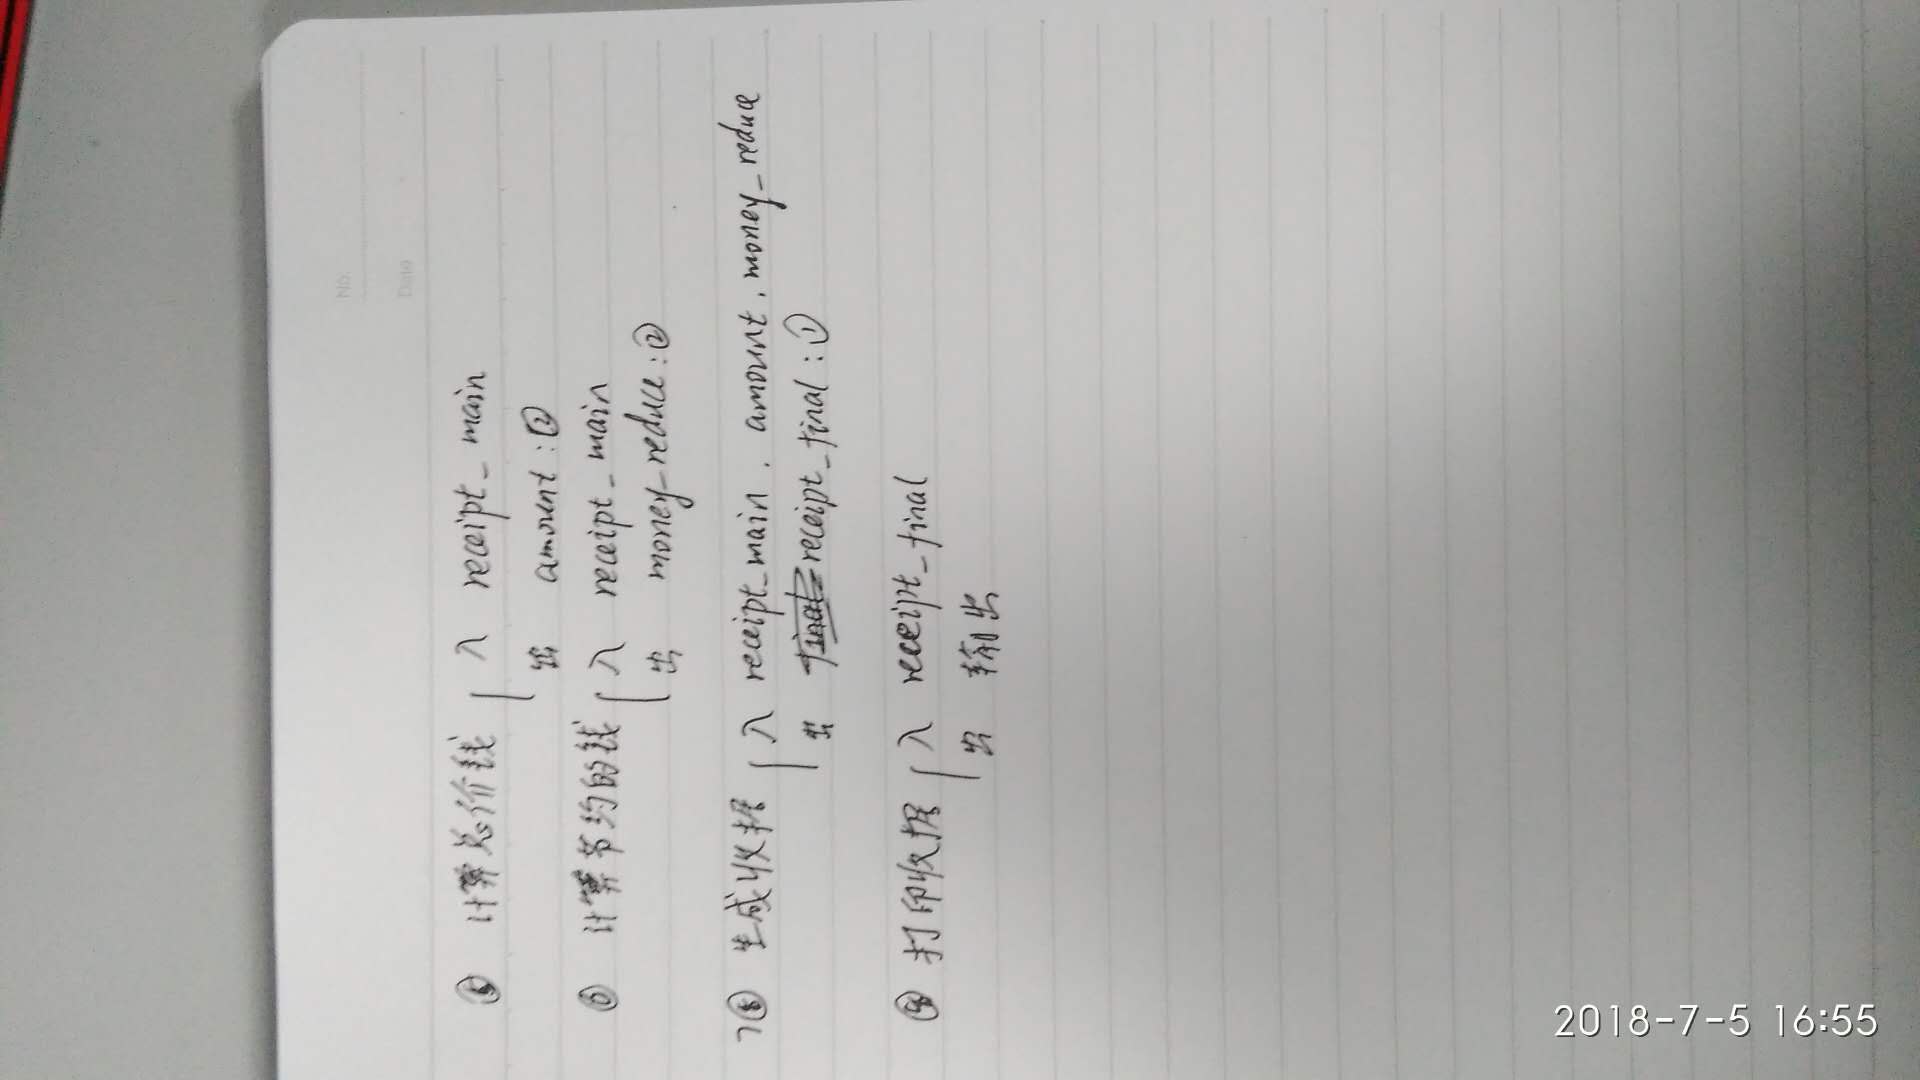 No.
Date
⑤ 计算总价钱 入 receipt_main
出 amount:②
⑥ 计算节约的钱 入 receipt_main
出 money_reduce:②
7⑧ 生成收据 入 receipt_main, amount, money_reduce
出 final receipt_final:①
打印收据 入 receipt_final
出 输出
2018-7-5 16:55